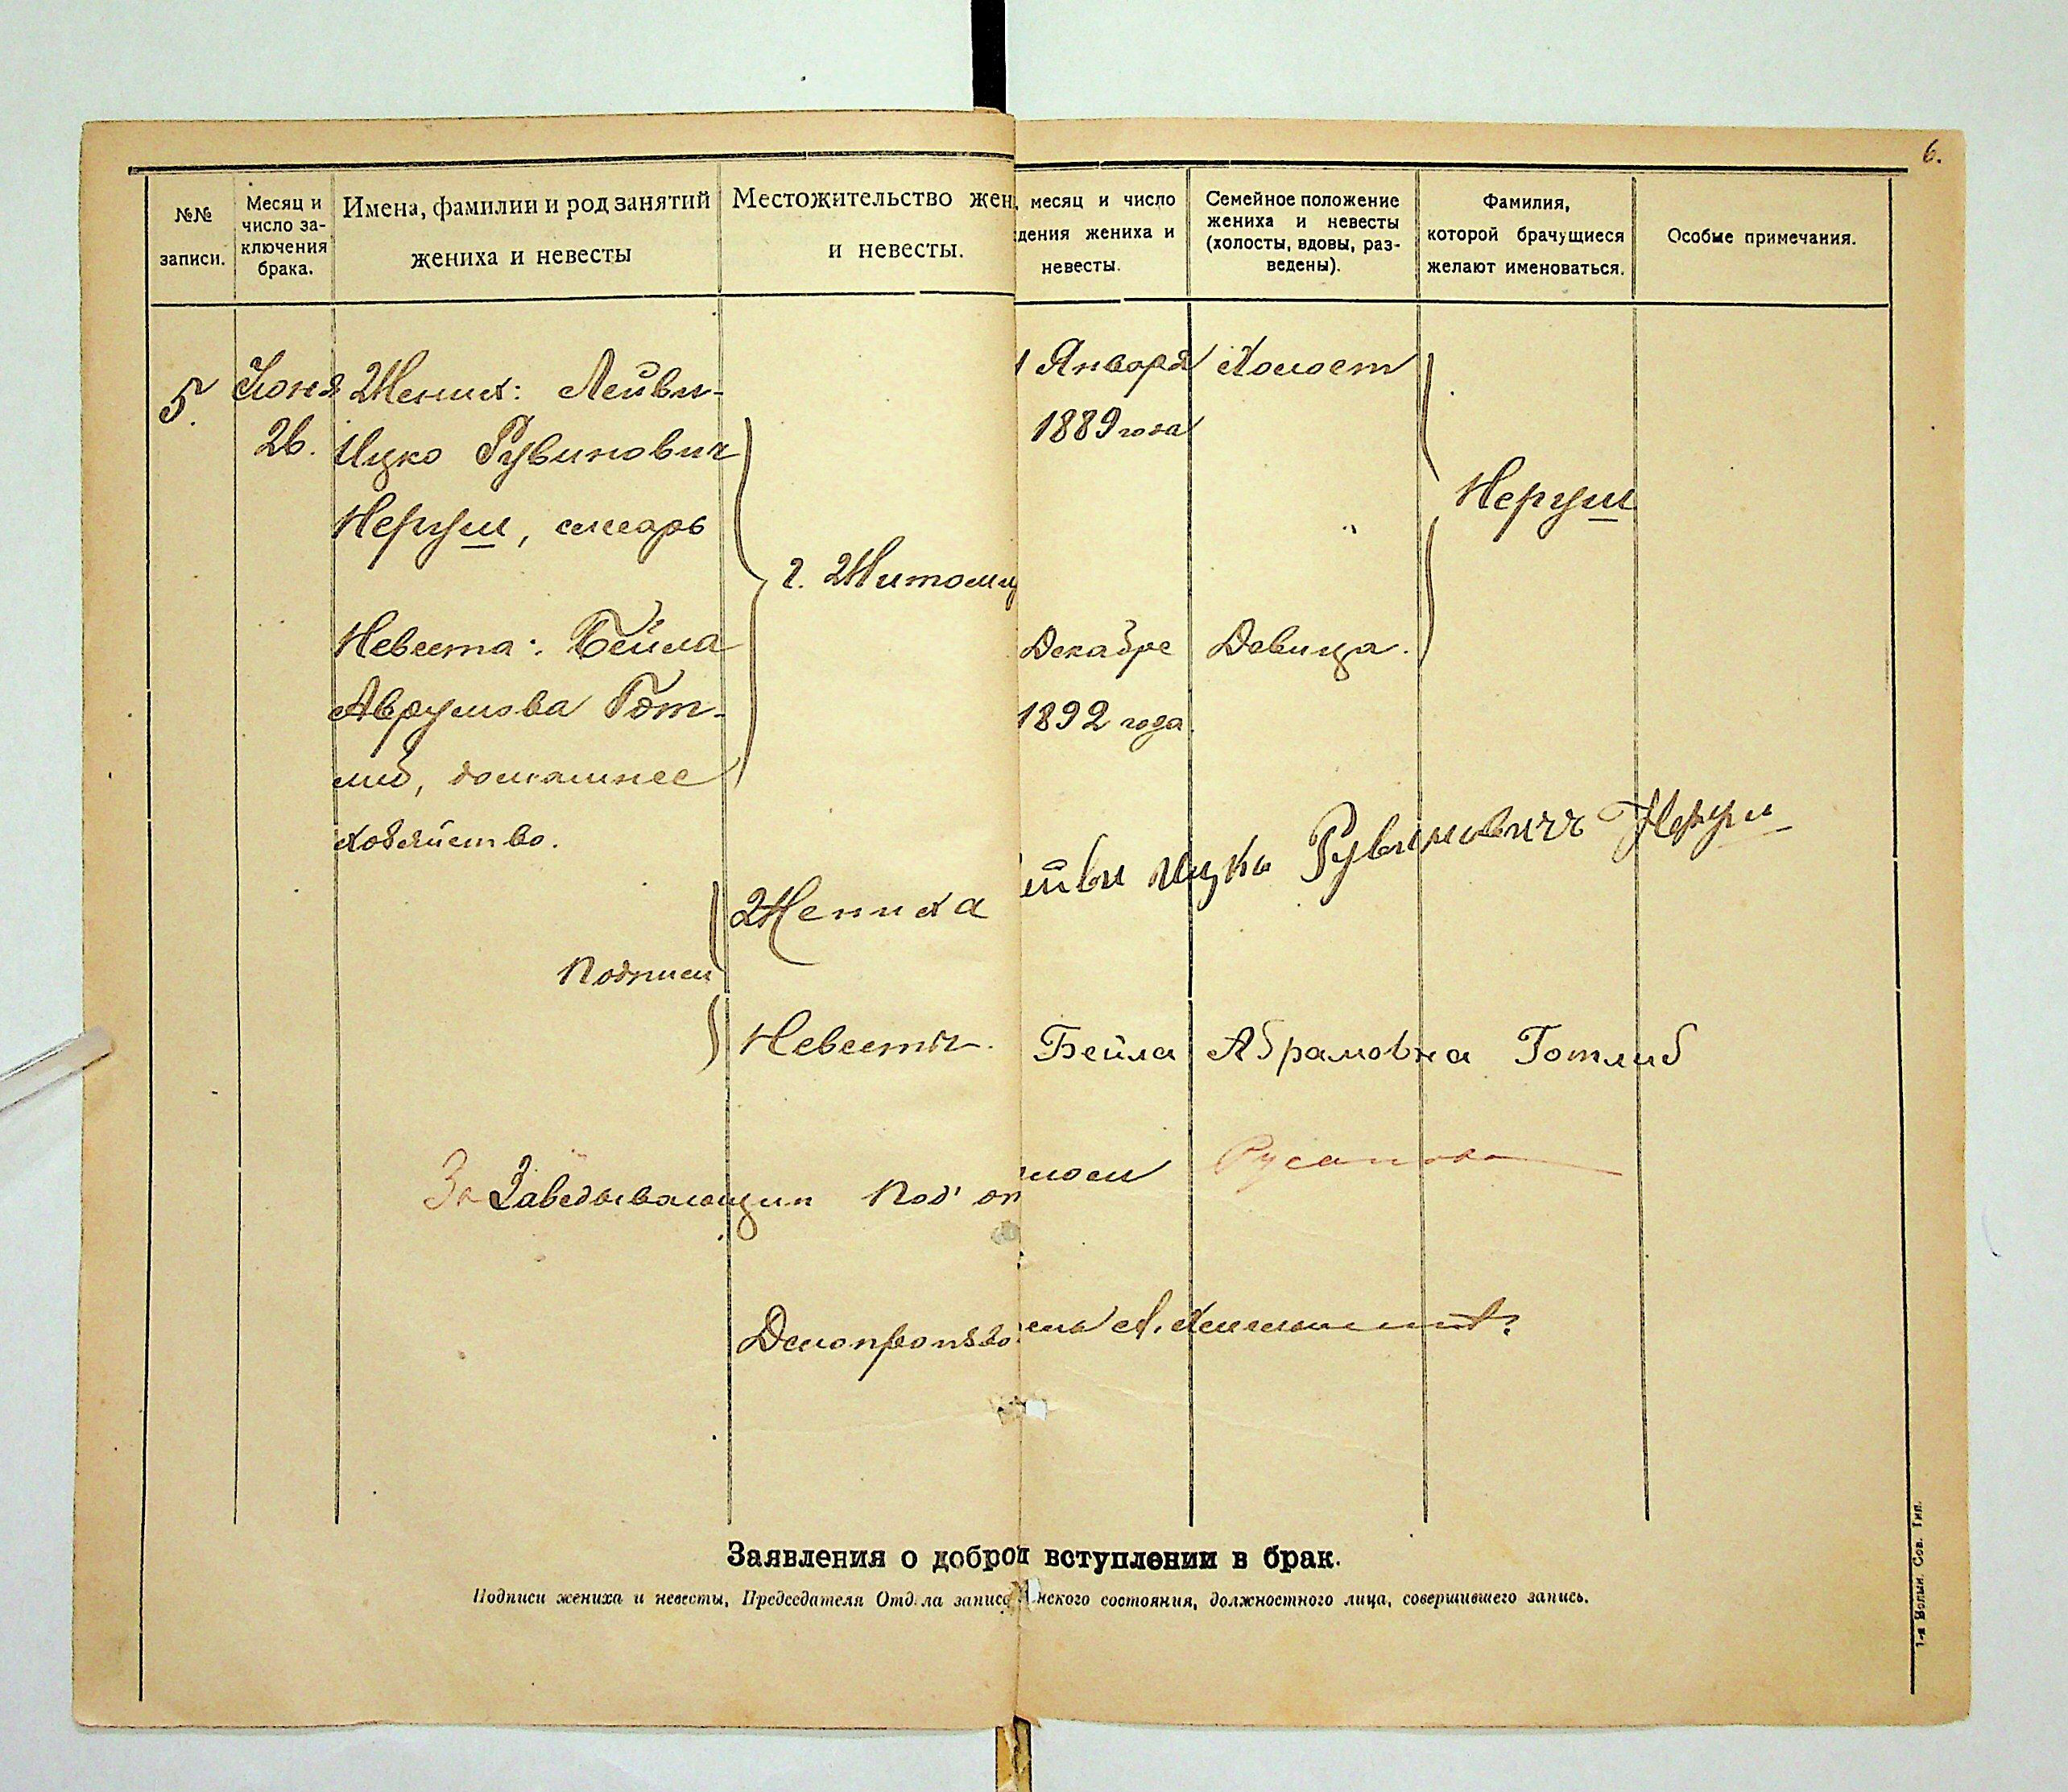 6.
№№ записи.
Месяц и число заключения брака.
Имена, фамилии и род занятий жениха и невесты
Местожительство жен
и невесты.
месяц и число
дения жениха и
невесты.
Семейное положение
жениха и невесты
(холосты, вдовы, раз-
ведены).
Фамилия,
которой брачущиеся
желают именоваться.
Особые примечания.
5.
Июня
26.
Жених: Лейви-
Ицко Рувинович
Неруш, слесарь
Невеста: Бейла
Аврумова Гот-
либ, домашнее
хозяйство.
г. Житоми
1 Января
1889 года
Декабре
1892 года
Холост
Девица.
Неруш
Подписи
Жениха
ейви Ицко Рувинович Неруш
Невесты.
Бейла Абрамовна Готлиб
За Заведывающий Под' от
Русанова
Делопроизво
Заявления о добро вступлении в брак.
Подписи жениха и невесты, Председателя Отдела записе нского состояния, должностного лица, совершившего запись.
1-я Волын. Сов. Тип.